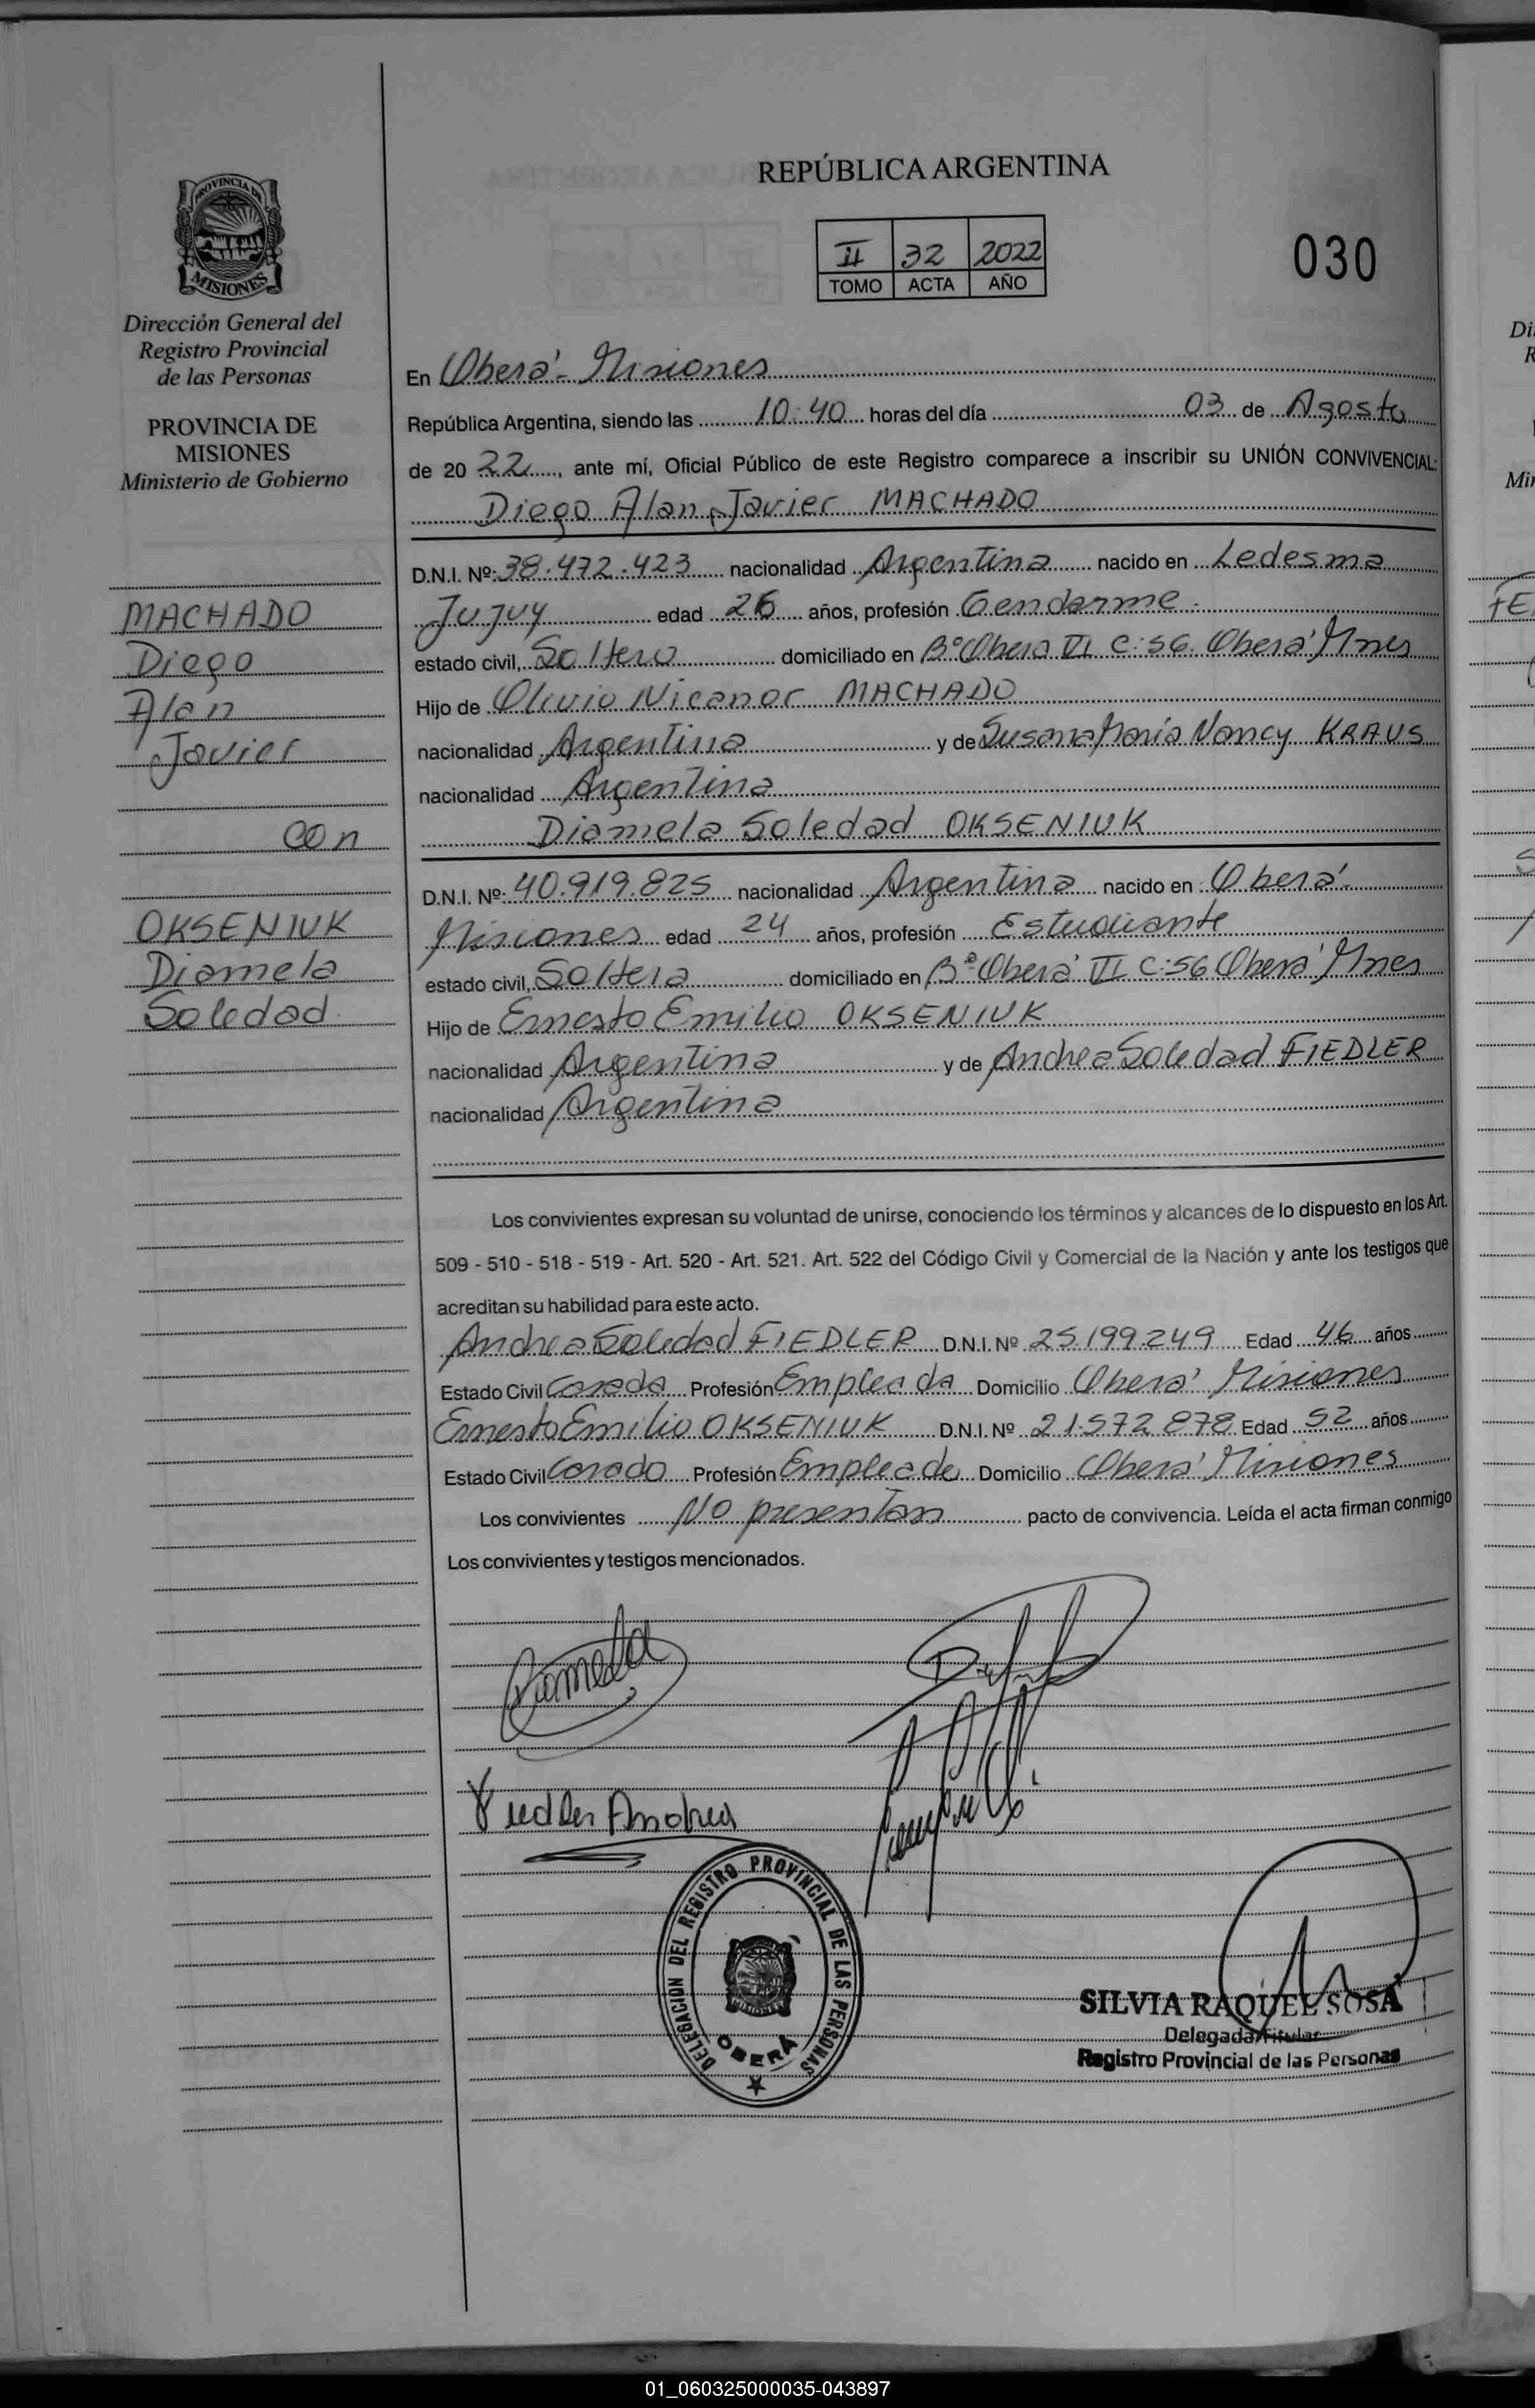 REPÚBLICA ARGENTINA
PROVINCIA DE
MISIONES
II 32 2022
TOMO ACTA AÑO
030
Dirección General del
Registro Provincial
de las Personas
PROVINCIA DE
MISIONES
Ministerio de Gobierno
MACHADO
Diego
Alan
Javier
con
OKSENIUK
Diamela
Soledad
En Oberá - Misiones
República Argentina, siendo las 10:40 horas del día 03 de Agosto
de 20 22, ante mí, Oficial Público de este Registro comparece a inscribir su UNIÓN CONVIVENCIAL:
Diego Alan Javier MACHADO
D.N.I. Nº: 38.472.423 nacionalidad Argentina nacido en Ledesma
Jujuy edad 26 años, profesión Gendarme.
estado civil, Soltero domiciliado en Bº Oberá VI C:56 Oberá Mnes
Hijo de Olivio Nicanor MACHADO
nacionalidad Argentina y de Susana María Nancy KRAUS
nacionalidad Argentina
Diamela Soledad OKSENIUK
D.N.I. Nº: 40.919.825 nacionalidad Argentina nacido en Oberá
Misiones edad 24 años, profesión Estudiante
estado civil, Soltera domiciliado en Bº Oberá VI C:56 Oberá Mnes
Hijo de Ernesto Emilio OKSENIUK
nacionalidad Argentina y de Andrea Soledad FIEDLER
nacionalidad Argentina
Los convivientes expresan su voluntad de unirse, conociendo los términos y alcances de lo dispuesto en los Art.
509 - 510 - 518 - 519 - Art. 520 - Art. 521. Art. 522 del Código Civil y Comercial de la Nación y ante los testigos que
acreditan su habilidad para este acto.
Andrea Soledad FIEDLER D.N.I. Nº 25.199.249 Edad 46 años
Estado Civil Casada Profesión Empleada Domicilio Oberá Misiones
Ernesto Emilio OKSENIUK D.N.I. Nº 21.572.878 Edad 52 años
Estado Civil Casado Profesión Empleado Domicilio Oberá Misiones
Los convivientes No presentan pacto de convivencia. Leída el acta firman conmigo
Los convivientes y testigos mencionados.
Diamela
Fiedler Andrea
DELEGACION DEL REGISTRO PROVINCIAL DE LAS PERSONAS
OBERÁ
SILVIA RAQUEL SOSA
Delegada Titular
Registro Provincial de las Personas
01_060325000035-043897